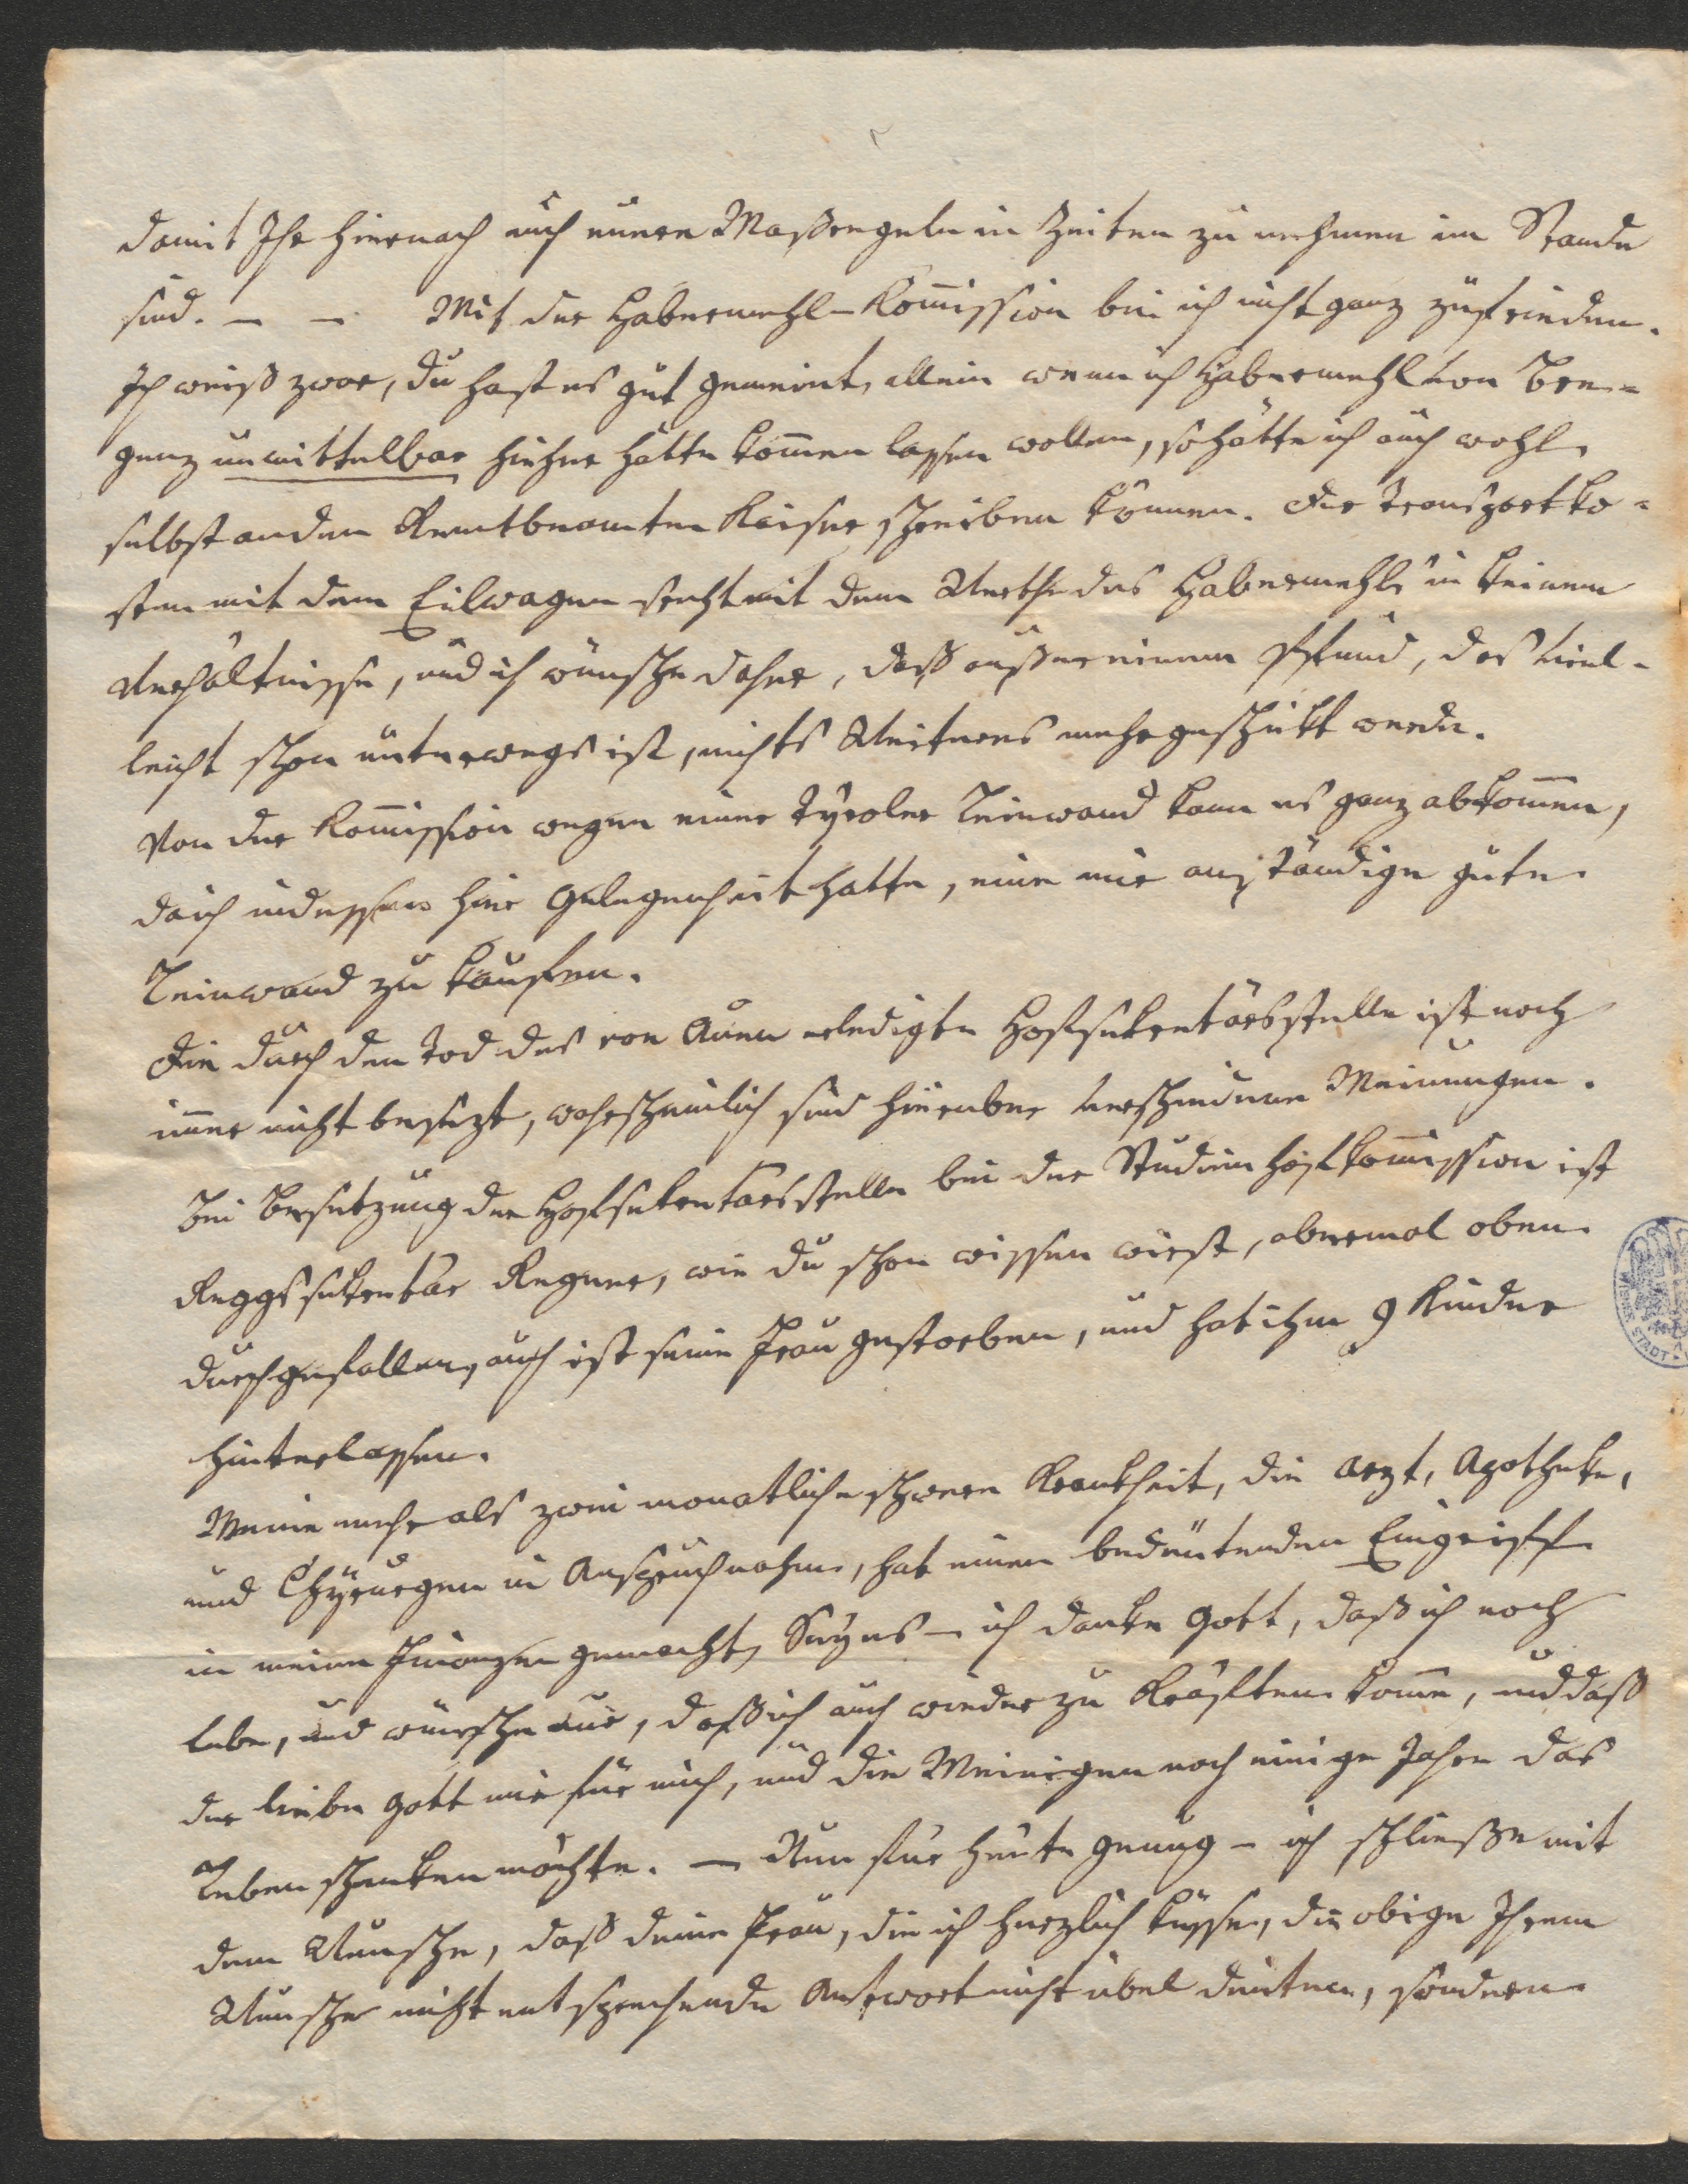 damit Ihr hiernach auch eüere Maßregeln in Zeiten zu nehmen im Stande
sind. — — Mit der Habermehl-Kom̄ission bin ich nicht ganz zufrieden.
Ich weiß zwar, du hast es gut gemeint, allein wenn ich Habermehl von Bre-
genz unmittelbar hieher hätte kom̄en lassen wollen, so hätte ich auch wohl
selbst an den Rentbeamten Kaiser schreiben können. Die Transportko-
sten mit dem Eilwagen steht mit dem Werthe des Habermehls in keinem
Verhältnisse, und ich wünsche daher, daß außer einem Pfund, das viel-
leicht schon unterwegs ist, nichts Weiteres mehr geschikt werde.
Von der Kom̄ission wegen einer Tyroler Leinwand kann es ganz abkom̄en,
da ich indessen hier Gelegenheit hatte, eine mir anständige gute
Leinwand zu kaufen.
Die durch den Tod des von Auer erledigte Hofsekretärsstelle ist noch
im̄er nicht besezt, wahrscheinlich sind hierüber verschiedene Meinungen.
Bei Besetzung der Hofsekretärsstelle bei der Studienhofkom̄ission ist
Reggssekretär Regner, wie du schon wissen wirst, abermal oben
durchgefallen, auch ist seine Frau gestorben, und hat ihm 9 Kinder
hinterlassen.
Meine mehr als zwei monatliche schwere Krankheit, die Arzt, Apotheke,
und Chyrurgen in Anspruch nahm, hat einen bedeutenden Eingriff
in meine Finanzen gemacht, Seye es — ich danke Gott, daß ich noch
lebe, und wünsche nur, daß ich auch wieder zu Kräften kom̄e, und daß
der liebe Gott mir für mich, und die Meinigen noch einige Jahre das
Leben schenken möchte. — Nun für heute genug — ich schließe mit
dem Wunsche, daß deine Frau, die ich herzlich küsse, die obige Ihrem
Wunsche nicht entsprechende Antwort nicht übel deuten, sondern